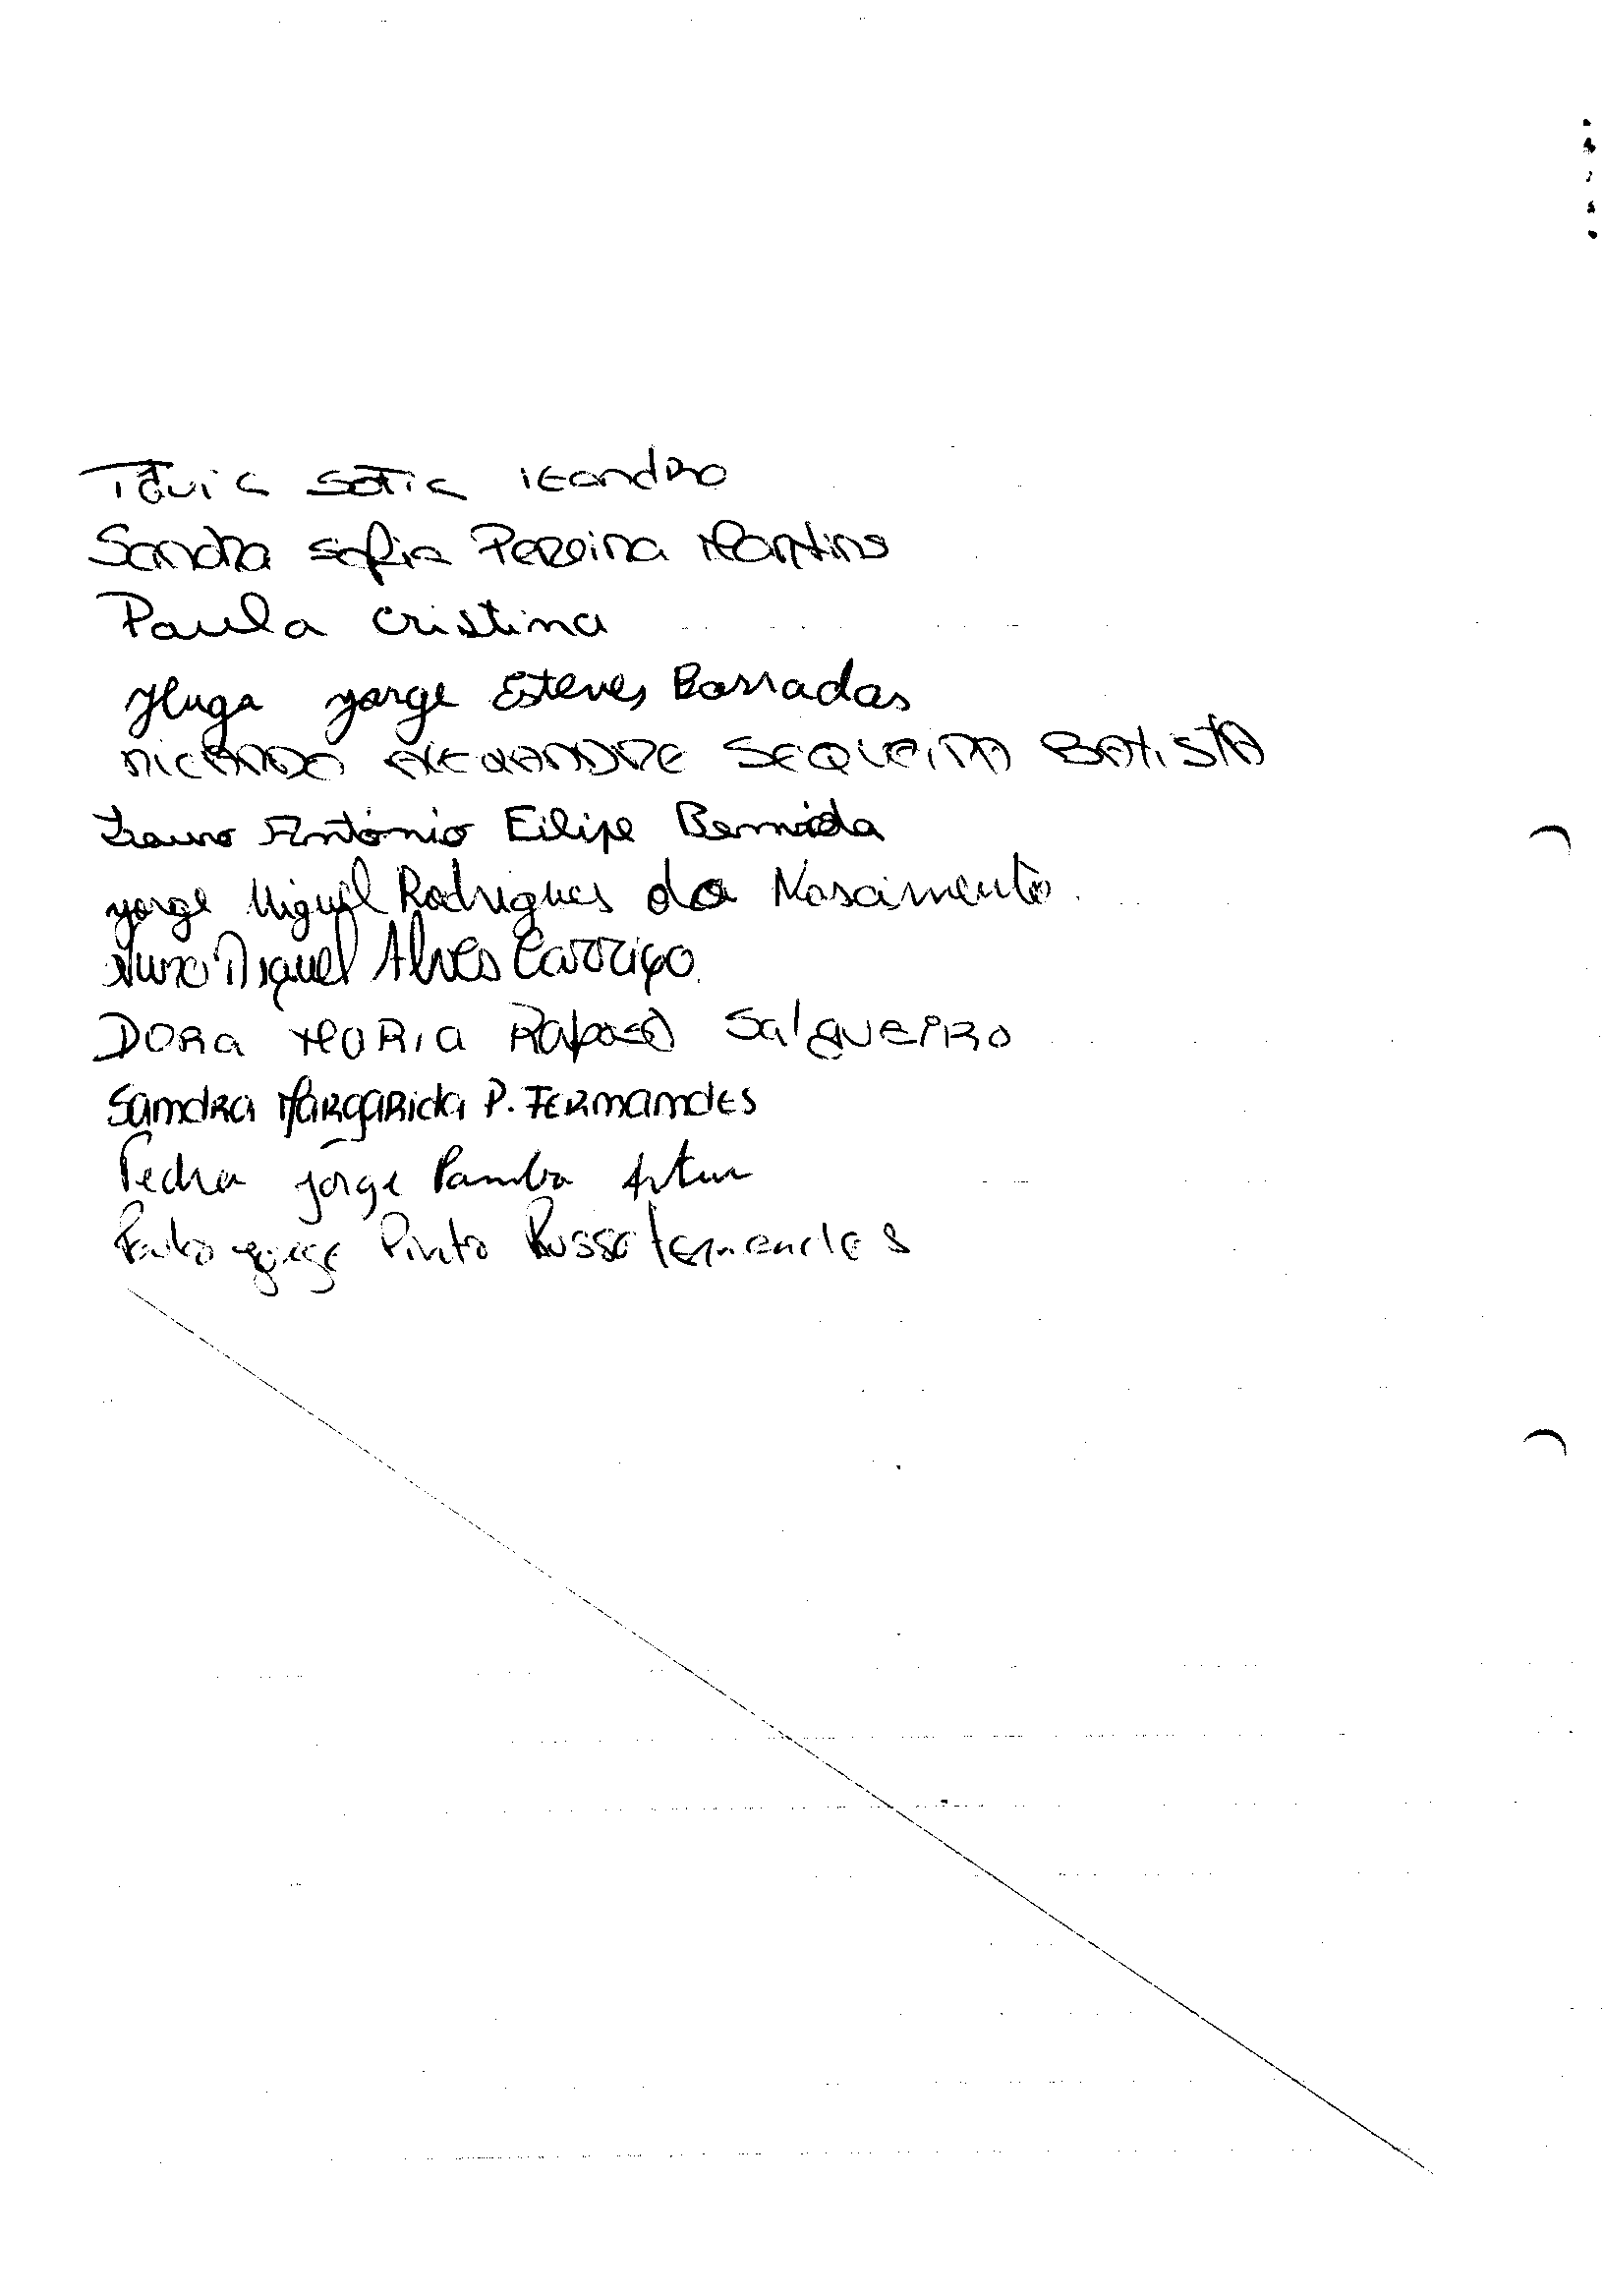 Sofia Leandro
Sandra Sofia Pereira Martins
Paula Cristina
Hugo Jorge Esteves Barradas
RICARDO ALEXANDRE SEQUEIRA BATISTA
António Filipe
Jorge Miguel Rodrigues do Nascimento.
Nuno Miguel Alves Carriço.
DORA MARIA RAPOSO SALGUEIRO
Sandra Margarida P. Fernandes
Pedro Jorge Artur
Paulo Jorge Pinto Russo Fernandes